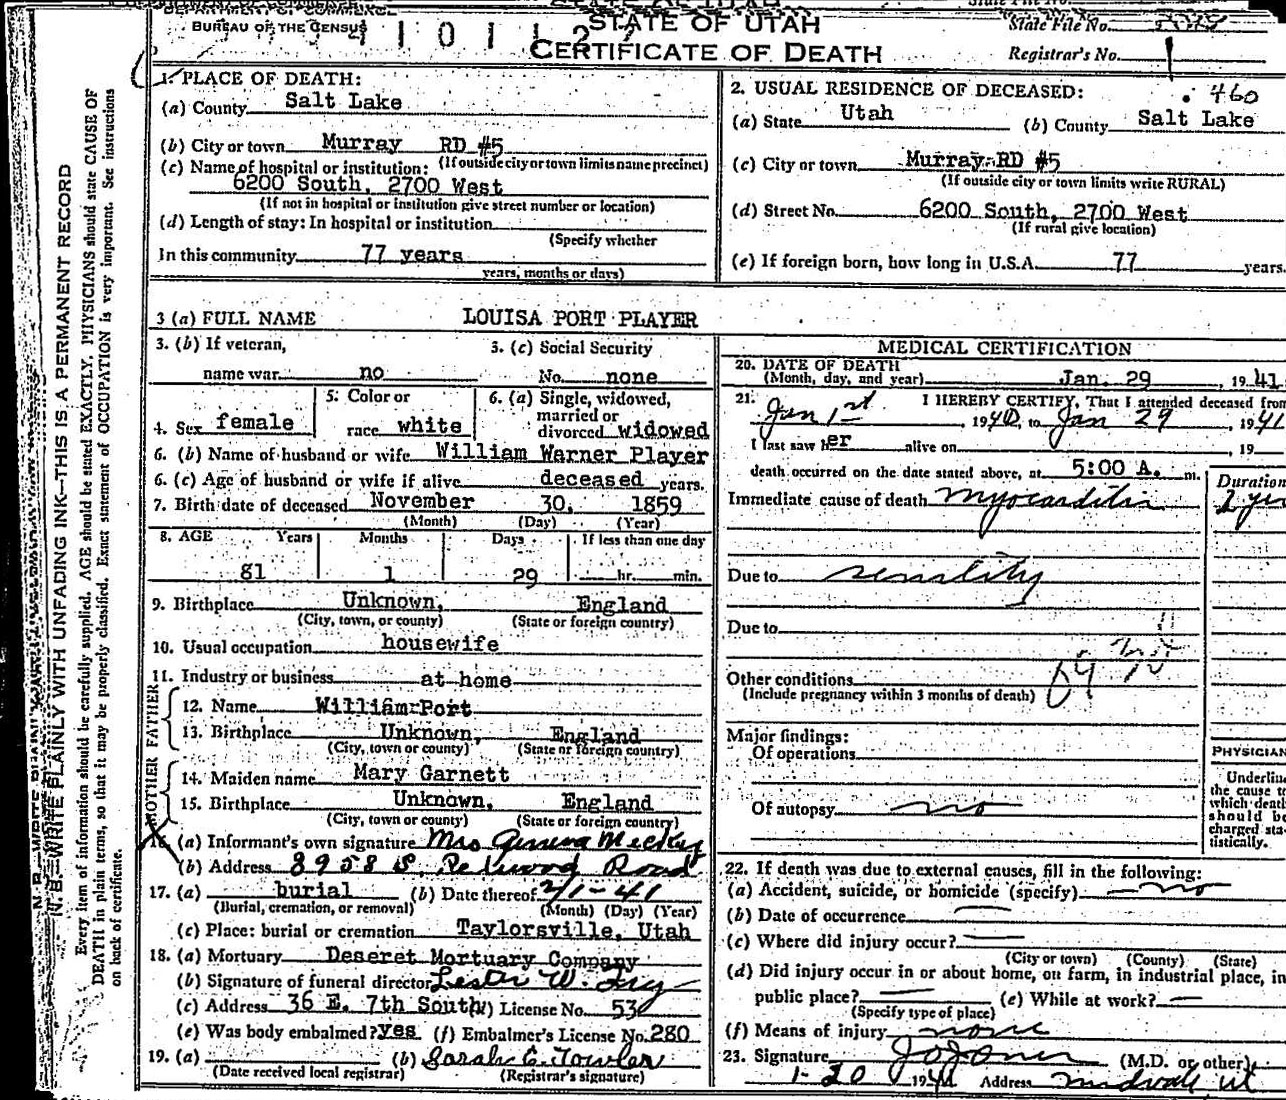 BUREAU OF THE CENSUS
STATE OF UTAH
CERTIFICATE OF DEATH
State File No.
Registrar's No. 1
N. B.—WRITE PLAINLY WITH UNFADING INK—THIS IS A PERMANENT RECORD
Every item of information should be carefully supplied. AGE should be stated EXACTLY. PHYSICIANS should state CAUSE OF
DEATH in plain terms, so that it may be properly classified. Exact statement of OCCUPATION is very important. See instructions
on back of certificate.
1. PLACE OF DEATH:
(a) County Salt Lake
(b) City or town Murray RD #5
(If outside city or town limits name precinct)
(c) Name of hospital or institution:
6200 South, 2700 West
(If not in hospital or institution give street number or location)
(d) Length of stay: In hospital or institution
(Specify whether
In this community 77 years
years, months or days)
2. USUAL RESIDENCE OF DECEASED:
460
(a) State Utah (b) County Salt Lake
(c) City or town Murray RD #5
(If outside city or town limits write RURAL)
(d) Street No. 6200 South, 2700 West
(If rural give location)
(e) If foreign born, how long in U.S.A. 77 years.
3 (a) FULL NAME LOUISA PORT PLAYER
3. (b) If veteran, name war no
3. (c) Social Security No. none
4. Sex female
5. Color or race white
6. (a) Single, widowed, married or divorced widowed
6. (b) Name of husband or wife William Warner Player
6. (c) Age of husband or wife if alive deceased years.
7. Birth date of deceased November 30, 1859
(Month) (Day) (Year)
8. AGE Years Months Days If less than one day
81 1 29 hr. min.
9. Birthplace Unknown, England
(City, town, or county) (State or foreign country)
10. Usual occupation housewife
11. Industry or business at home
FATHER
12. Name William Port
13. Birthplace Unknown, England
(City, town or county) (State or foreign country)
MOTHER
14. Maiden name Mary Garnett
15. Birthplace Unknown, England
(City, town or county) (State or foreign country)
16. (a) Informant's own signature Mrs Geneva
(b) Address 3958 S. Redwood Road
17. (a) burial (b) Date thereof 2/1-41
(Burial, cremation, or removal) (Month) (Day) (Year)
(c) Place: burial or cremation Taylorsville, Utah
18. (a) Mortuary Deseret Mortuary Company
(b) Signature of funeral director Lester W.
(c) Address 36 E. 7th South License No. 53
(e) Was body embalmed? yes (f) Embalmer's License No. 280
19. (a) (b) Sarah E. Towler
(Date received local registrar) (Registrar's signature)
MEDICAL CERTIFICATION
20. DATE OF DEATH
(Month, day, and year) Jan. 29, 1941
21. I HEREBY CERTIFY, That I attended deceased from
Jan 1st 1940, to Jan 29, 1941
I last saw her alive on , 19
death occurred on the date stated above, at 5:00 A. m.
Duration
Immediate cause of death myocarditis 2
Due to senility
Due to
Other conditions
(Include pregnancy within 3 months of death)
Major findings:
Of operations
Of autopsy no
PHYSICIAN
Underline
the cause to
which death
should be
charged sta-
tistically.
22. If death was due to external causes, fill in the following:
(a) Accident, suicide, or homicide (specify) no
(b) Date of occurrence
(c) Where did injury occur?
(City or town) (County) (State)
(d) Did injury occur in or about home, on farm, in industrial place, in
public place? (e) While at work?
(Specify type of place)
(f) Means of injury none
23. Signature (M.D. or other)
1-30 1941 Address Midvale Ut